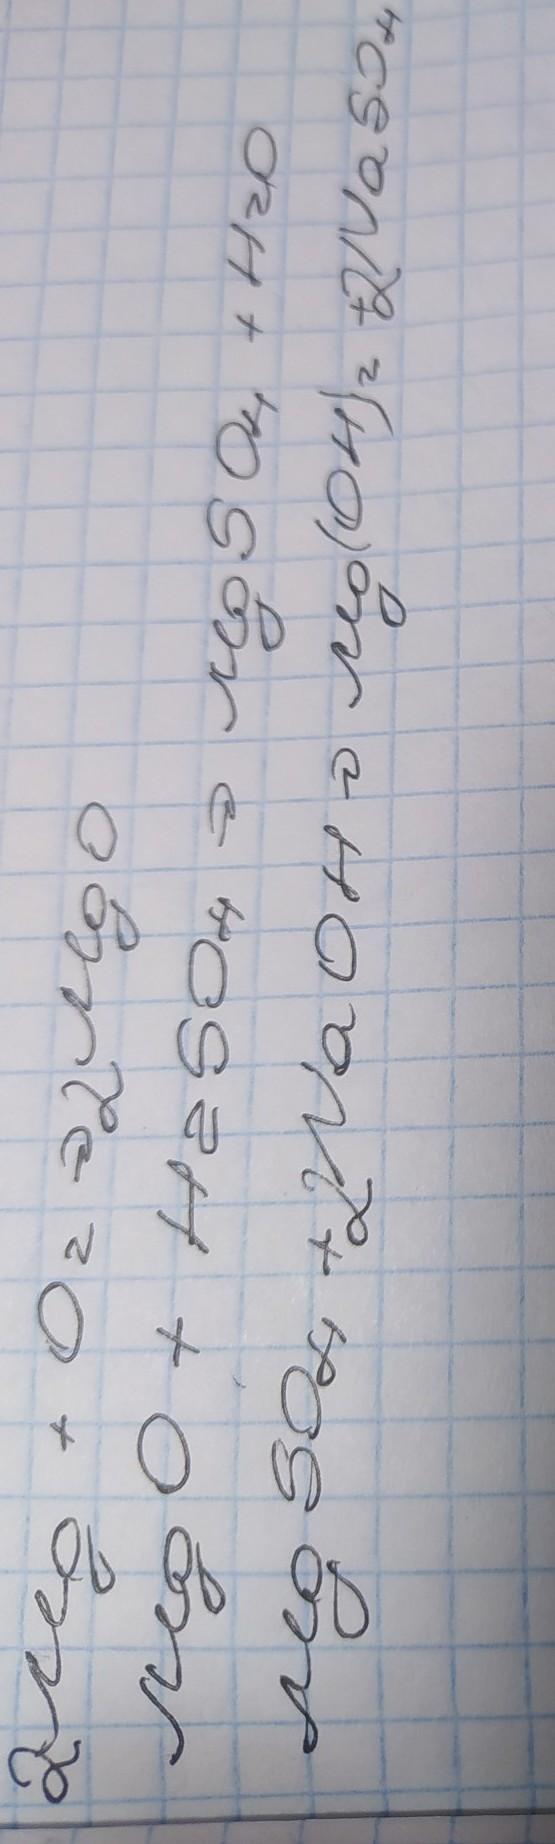 2Mg + O2 = 2MgO
MgO + H2SO4 = MgSO4 + H2O
MgSO4 + 2NaOH = Mg(OH)2 + 2NaSO4